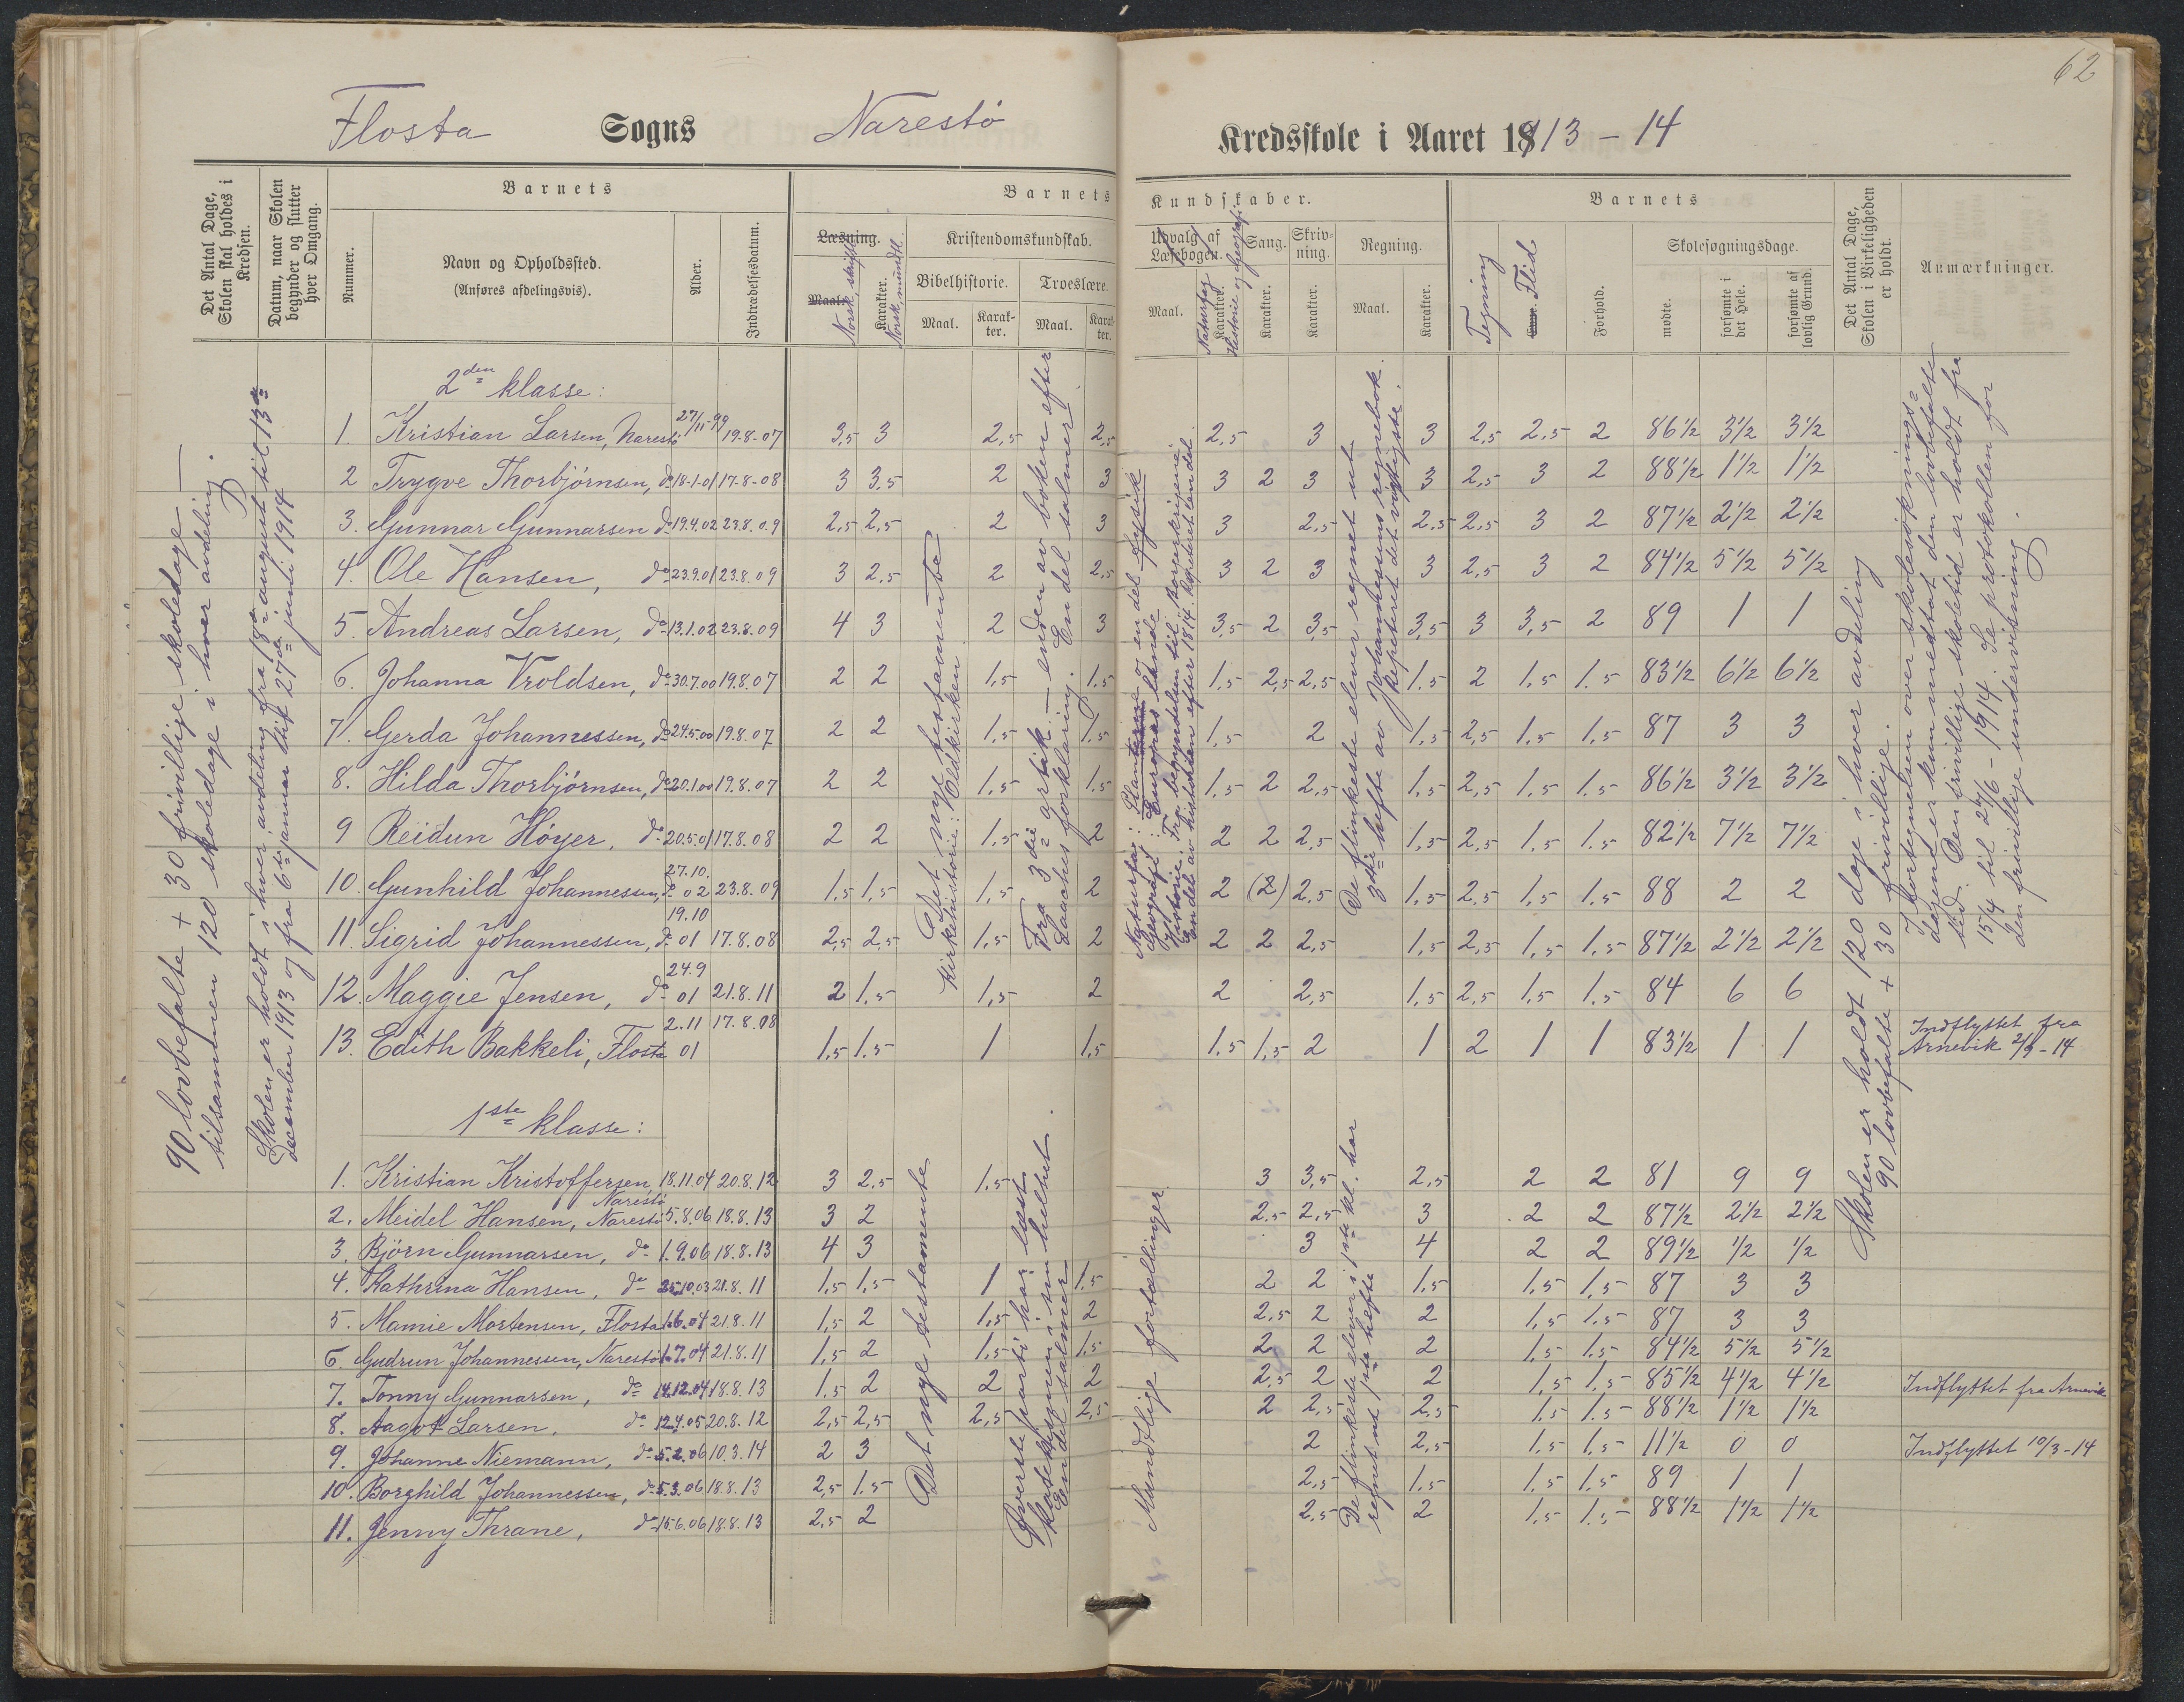 62
Flosta Sogns Narestö Kredsskole i Aaret 1913-14
Det Antal Dage, Skolen skal holdes i Kredsen.
Datum, naar Skolen begynder og slutter hver Omgang.
Barnets
Nummer.
Navn og Opholdssted.
(Anføres afdelingsvis).
Alder.
Indtrædelsesdatum.
Barnets Kundskaber.
Læsning.
Maal.
Norsk, skriftl.
Karakter.
Norsk, mundtl.
Kristendomskundskab.
Bibelhistorie.
Maal.
Karakter.
Troeslære.
Maal.
Karakter.
Udvalg af Læsebogen.
Maal.
Naturfag
Karakter.
Historie og Geografi
Sang.
Karakter.
Skrivning.
Karakter.
Regning.
Maal.
Karakter.
Barnets
Tegning
Flid
Forhold.
Skolesøgningsdage.
mødte.
forsømte i det Hele.
forsømte af lovlig Grund.
Det Antal Dage, Skolen i Virkeligheden er holdt.
Anmærkninger.
90 lovbefalte + 30 frivillige skoledage —
tilsammen 120 skoledage i hver avdeling.
Skolen er holdt i hver avdeling fra 18de august til 13de
december 1913 og fra 6te januar til 27de juni 1914
2den klasse:
1. Kristian Larsen, Narestö 27/11-99 19.8-07 3,5 3 2,5 2,5 2,5 3 3 2,5 2,5 2 86½ 3½ 3½
2 Trygve Thorbjörnsen, do 18-1-01 17-8-08 3 3,5 2 3 3 2 3 3 2,5 3 2 88½ 1½ 1½
3. Gunnar Gunnarsen do 19.4.02 23.8.09 2,5 2,5 2 3 3 2,5 2,5 2,5 3 2 87½ 2½ 2½
4. Ole Hansen, do 23.9.01 23.8.09 3 2,5 2 2,5 3 2 3 3 2,5 3 2 84½ 5½ 5½
5. Andreas Larsen, do 13.1.02 23.8.09 4 3 2 3 3,5 2 3,5 3,5 3 3,5 2 89 1 1
6. Johanna Vroldsen, do 30.7.00 19.8.07 2 2 1,5 1,5 1,5 2,5 2,5 1,5 2 1,5 1.5 83½ 6½ 6½
7. Gerda Johannessen, do 24.5.00 19.8.07 2 2 1,5 1,5 1,5 2 1,5 2,5 1,5 1,5 87 3 3
8. Hilda Thorbjörnsen, do 20.1.00 19.8.07 2 2 1,5 1,5 1,5 2 2,5 1,5 2,5 1,5 1.5 86½ 3½ 3½
9 Reidun Höyer, do 20.5.01 17.8.08 2 2 1,5 2 2 2 2,5 1,5 2,5 1,5 1.5 82½ 7½ 7½
10. Gunhild Johannessen, do 27.10.02 23.8.09 1,5 1,5 1,5 2 2 (2) 2,5 1,5 2,5 1,5 1.5 88 2 2
11. Sigrid Johannessen, do 19.10 01 17.8.08 2,5 2,5 1,5 2 2 2 2,5 1,5 2,5 1,5 1.5 87½ 2½ 2½
12. Maggie Jensen, do 24.9 01 21.8.11 2 1,5 1,5 2 2 2,5 1,5 2,5 1,5 1.5 84 6 6
13. Edith Bakkeli, Flosta 2.11 01 17.8.08 1,5 1,5 1 1,5 1.5 1,5 2 1 2 1 1 83½ 1 1 Indflyttet fra Arnevik 2/3-14
Det nye testamente
Kirkehistorie: Oldkirken
Fra 3die artik. — enden av boken efter
Laaches forklaring. En del salmer.
Naturfag: Planterne og en del fysik
Geografi: Europas lande
Historie: Fra begyndelsen til borgerkrigene.
En del av historien efter 1814. Repetert en del.
De flinkeste elever regnet ut
3die hefte av Johannessens regnebok.
Repeteret det vigtigste.
Skolen er holdt 120 dage i hver avdeling
90 lovbefalte + 30 frivillige.
I fortegnelsen over skolesøknings-
dagene er kun medtat den lovbefalte
tid. Den frivillige skoletid er holdt fra
15/4 til 27/6-1914. Se protokollen for
den frivillige undervisning.
1ste klasse:
1. Kristian Kristoffersen, Narestö 18.11.04 20.8.12 3 2.5 1,5 3 3,5 2,5 2 2 81 9 9
2. Meidel Hansen, Narestö 5.8.06 18.8.13 3 2 2,5 2,5 3 2 2 87½ 2½ 2½
3. Björn Gunnarsen, do 1.9.06 18.8.13 4 3 3 4 2 2 89½ ½ ½
4. Kathrina Hansen, do 25.10.03 21.8.11 1,5 1,5 1 1,5 2 2 1,5 1,5 1,5 87 3 3
5. Mamie Mortensen, Flosta 1.6.04 21.8.11 1,5 2 1,5 2 2,5 2 2 1,5 1.5 87 3 3
6. Gudrun Johannessen, Narestö 1.7.04 21.8.11 1,5 2 1,5 1,5 2 2 2 1,5 1.5 84½ 5½ 5½
7. Tonny Gunnarsen, do 14.12.04 18.8.13 1,5 2 2 2 2,5 2 2 1,5 1.5 85½ 4½ 4½ Indflyttet fra Arnevik
8. Aagot Larsen, do 12.4.05 20.8.12 2,5 2,5 2,5 2,5 2 2,5 2,5 1,5 1.5 88½ 1½ 1½
9. Johanne Niemann, do 5.2.06 10.3.14 2 3 2 2,5 1,5 1,5 11½ 0 0 Indflyttet 10/3-14
10. Borghild Johannessen, do 5.3.06 18.8.13 2,5 1.5 2,5 1,5 1,5 1,5 89 1 1
11. Jenny Thrane, do 15.6.06 18.8.13 2,5 2 2,5 2 1,5 1.5 88½ 1½ 1½
Det nye testamente
Øverste parti har læst
katekismen i sin helhet.
En del salmer
Mundtlige fortællinger.
De flinkeste elever i 1ste kl. har
regnet ut 1ste hefte